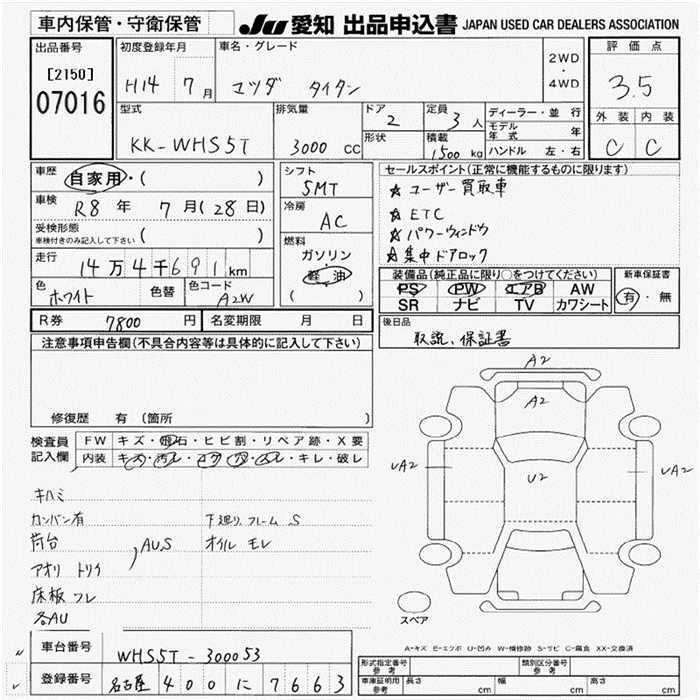 車内保管・守衛保管
JU 愛知 出品申込書 JAPAN USED CAR DEALERS ASSOCIATION
出品番号
[2150]
07016
初度登録年月
H14 7月
車名・グレード
マツダ タイタン
2WD
・
4WD
評価点
3.5
外装 内装
C C
型式
KK-WHS5T
排気量
3000 CC
ドア
2
形状
定員
3人
積載
1500 kg
ディーラー・並行
モデル年式 年
ハンドル 左・右
車歴 自家用・( )
車検 R8年 7月(28日)
受検形態
車検付きのみ記入して下さい ( )
走行 14万4千691km
色 ホワイト 色替 色コード A2W
シフト
5MT
冷房
AC
燃料
ガソリン
軽油
( )
セールスポイント(正常に機能するものに限ります)
☆ユーザー買取車
☆ETC
☆パワーウィンドウ
☆集中ドアロック
装備品(純正品に限り○をつけてください)
PS PW エアB AW
SR ナビ TV カワシート
新車保証書
有・無
R券 7800円 名変期限 月 日
後日品
取説、保証書
注意事項申告欄(不具合内容等は具体的に記入して下さい)
修復歴 有 (箇所 )
検査員記入欄
FW キズ・飛石・ヒビ割・リペア跡・X要
内装 キズ・汚レ・コゲ・穴・スレ・キレ・破レ
キハミ
カンバン有 下廻り、フレーム S
荷台
AUS オイル モレ
アオリ トリイ
床板 フレ
各AU
A2
A2
UA2
U2
UA2
スペア
A-キズ E-エクボ U-凹み W-補修跡 S-サビ C-腐食 XX-交換済
車台番号 WHS5T-300053
登録番号 名古屋 400 に 7663
形式指定番号
参考
類別区分番号
参考
車庫証明用
参考
長さ cm 幅 cm 高さ cm